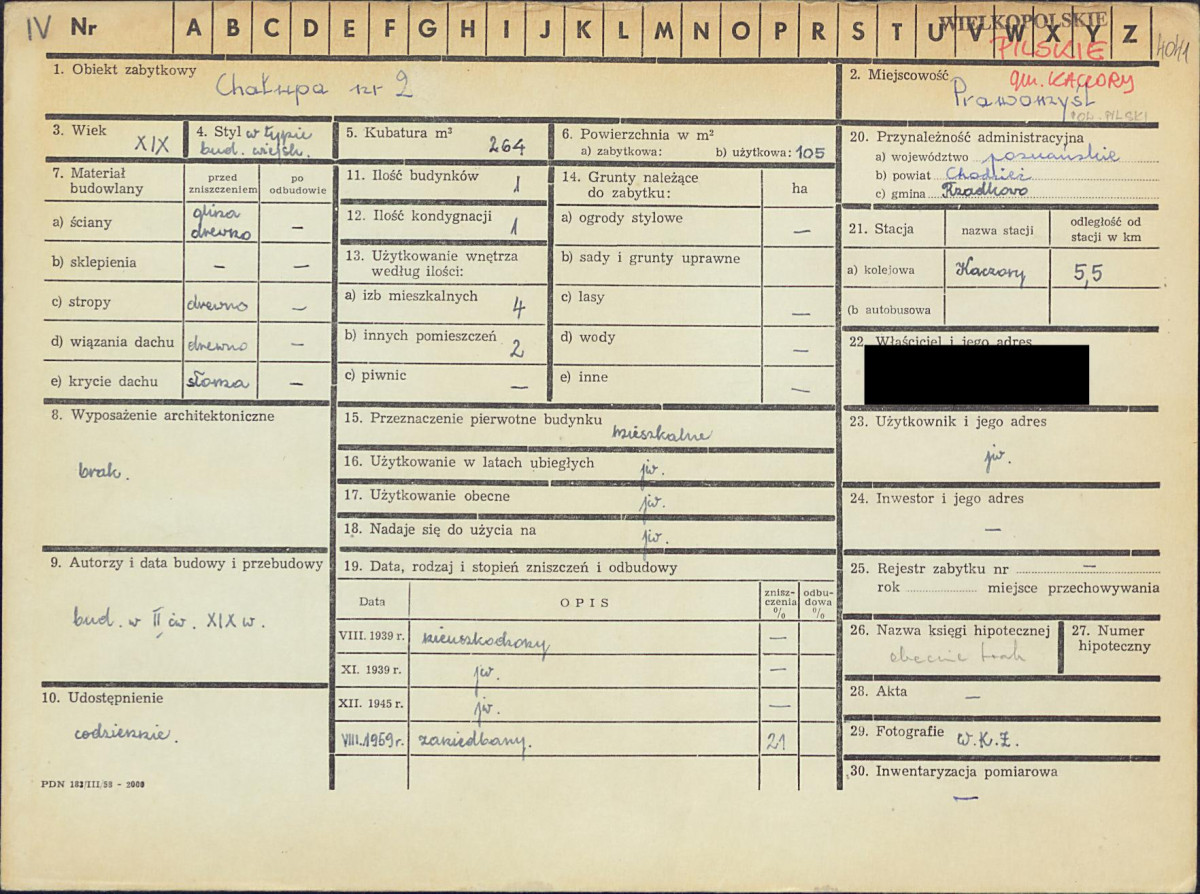 IV Nr A B C D E F G H I J K L M N O P R S T U V W X Y Z
WIELKOPOLSKIE
PILSKIE
4041
1. Obiekt zabytkowy
Chałupa nr 2
2. Miejscowość
gm. KACZORY
Prawomyśl
POW. PILSKI
3. Wiek
XIX
4. Styl w typie
bud. wiejsk.
5. Kubatura m³
264
6. Powierzchnia w m²
a) zabytkowa: b) użytkowa: 105
20. Przynależność administracyjna
a) województwo poznańskie
b) powiat Chodzież
c) gmina Rzadkowo
7. Materiał budowlany
przed zniszczeniem
po odbudowie
a) ściany
glina
drewno
–
b) sklepienia – –
c) stropy drewno –
d) wiązania dachu drewno –
e) krycie dachu słoma –
11. Ilość budynków
1
12. Ilość kondygnacji
1
13. Użytkowanie wnętrza
według ilości:
a) izb mieszkalnych
4
b) innych pomieszczeń
2
c) piwnic –
14. Grunty należące
do zabytku:
ha
a) ogrody stylowe –
b) sady i grunty uprawne
c) lasy –
d) wody –
e) inne –
21. Stacja
nazwa stacji
odległość od
stacji w km
a) kolejowa Kaczory 5,5
(b autobusowa
22. Właściciel i jego adres
8. Wyposażenie architektoniczne
brak.
15. Przeznaczenie pierwotne budynku
mieszkalne
16. Użytkowanie w latach ubiegłych jw.
17. Użytkowanie obecne jw.
18. Nadaje się do użycia na jw.
23. Użytkownik i jego adres
jw.
24. Inwestor i jego adres
–
9. Autorzy i data budowy i przebudowy
bud. w II ćw. XIX w.
19. Data, rodzaj i stopień zniszczeń i odbudowy
Data
OPIS
znisz-
czenia
%
odbu-
dowa
%
VIII. 1939 r. nieuszkodzony –
XI. 1939 r. jw. –
XII. 1945 r. jw. –
VIII. 1959 r. zaniedbany. 21
25. Rejestr zabytku nr –
rok miejsce przechowywania
26. Nazwa księgi hipotecznej
obecnie brak
27. Numer
hipoteczny
10. Udostępnienie
codziennie.
28. Akta –
29. Fotografie W.K.Z.
30. Inwentaryzacja pomiarowa
–
PDN 182/III/58 - 2000